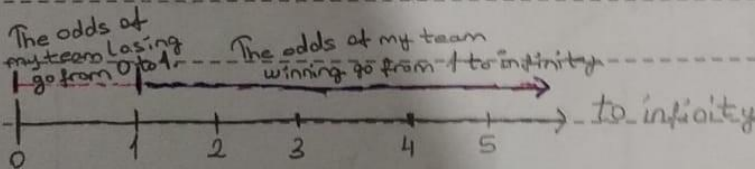 The odds of
my team losing
go from 0 to 1.
The odds of my team
winning go from 1 to infinity
to infinity
0 1 2 3 4 5